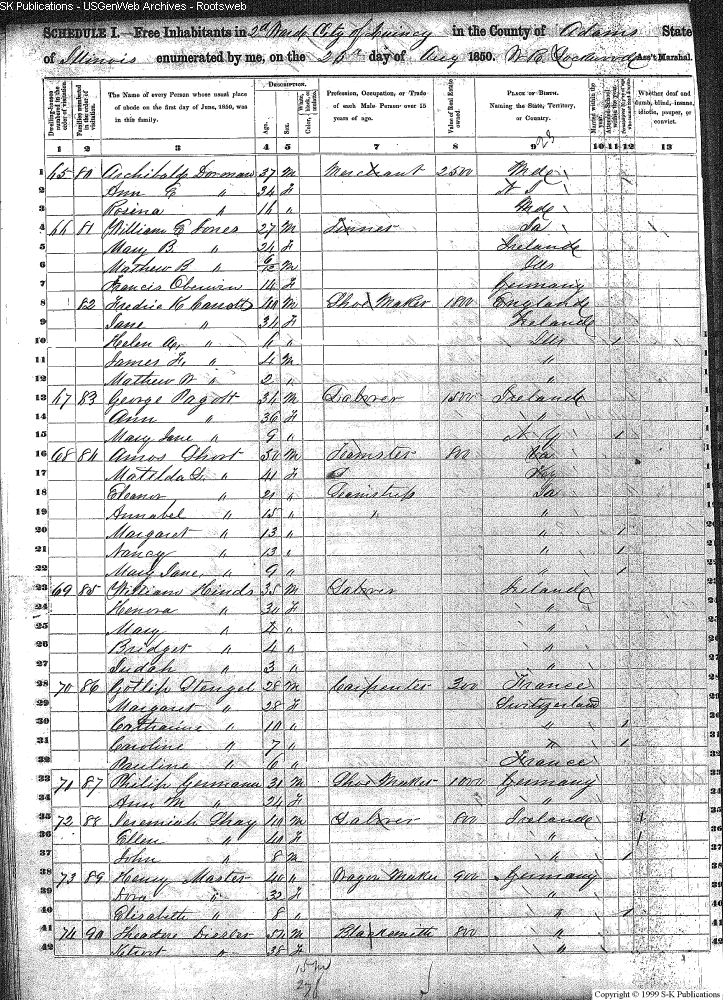 SK Publications - USGenWeb Archives - Rootsweb
SCHEDULE I.—Free Inhabitants in 2d Ward City of Quincy in the County of Adams State
of Illinois enumerated by me, on the 26th day of Aug 1850. Ass't Marshal.
Dwelling-houses numbered in the order of visitation.
Families numbered in the order of visitation.
The Name of every Person whose usual place of abode on the first day of June, 1850, was in this family.
DESCRIPTION.
Age.
Sex.
White, black, or mulatto.
Color,
Profession, Occupation, or Trade of each Male Person over 15 years of age.
Value of Real Estate owned
PLACE OF BIRTH.
Naming the State, Territory, or Country.
Married within the year.
Attended School within the year.
Whether deaf and dumb, blind, insane, idiotic, pauper, or convict.
1 2 3 4 5 6 7 8 9 10 11 12 13
1 65 80 Archibald 37 M Merchant 2500 Md
2 Ann E " 34 F
3 Rosina " 16 " Md
4 66 81 William G Jones 27 M Pa
5 Mary B " 24 F Ireland
6 Mathew B " 6/12 M Ills
7 Francis 14 F Germany
8 82 Fredric K 40 M Shoe Maker 1800 England
9 Jane " 34 F Ireland
10 Helen " 6 " Ills 1
11 James " 4 M "
12 Mathew W " 2 " "
13 67 83 George Pagott 34 M Laborer 1500 Ireland
14 Ann " 36 F "
15 Mary Jane " 9 " N Y 1
16 68 84 Amos Short 50 M Teamster 800 Pa
17 Matilda " 41 F Ky
18 Eleanor " 21 " Ia
19 Annabel " 15 " " "
20 Margaret " 13 " " 1
21 Nancy " 13 " " 1
22 Mary Jane " 9 " " 1
23 69 85 William Hinds 35 M Laborer Ireland
24 Henora " 30 F "
25 Mary " "
26 Bridget " 4 " "
27 Judah " 3 " "
28 70 86 Gotlip Stengel 28 M Carpenter 300 France
29 Margaret " 28 F Switzerland
30 Catharine " 10 " " 1
31 Caroline " 7 " " 1
32 Pauline " 6 " France
33 71 87 Philip Germann 31 M Shoe Maker 1000 Germany
34 Ann M " 24 F "
35 72 88 Jeremiah Shay 40 M Laborer 800 Ireland 1
36 Ellen " 40 F " 1
37 John " 8 M " 1
38 73 89 Henry Master 40 " Wagon Maker 900 Germany
39 Dora " 32 F "
40 Elisabeth " 8 " " 1
41 74 90 Theadore 54 M Blacksmith 800 "
42 " 38 F "
15 M
27 F
Copyright © 1999 S-K Publications